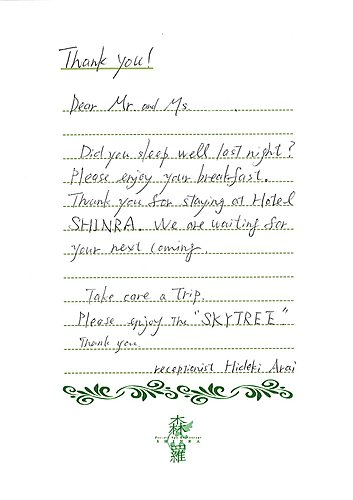 Thank you!
Dear Mr and Ms .
Did you sleep well last night?
Please enjoy your breakfast.
Thank you for staying at Hotel
SHINRA. We are waiting for
your next coming.
Take care a Trip.
Please enjoy The "SKYTREE"
Thank you
receptionist Hideki Arai
森羅